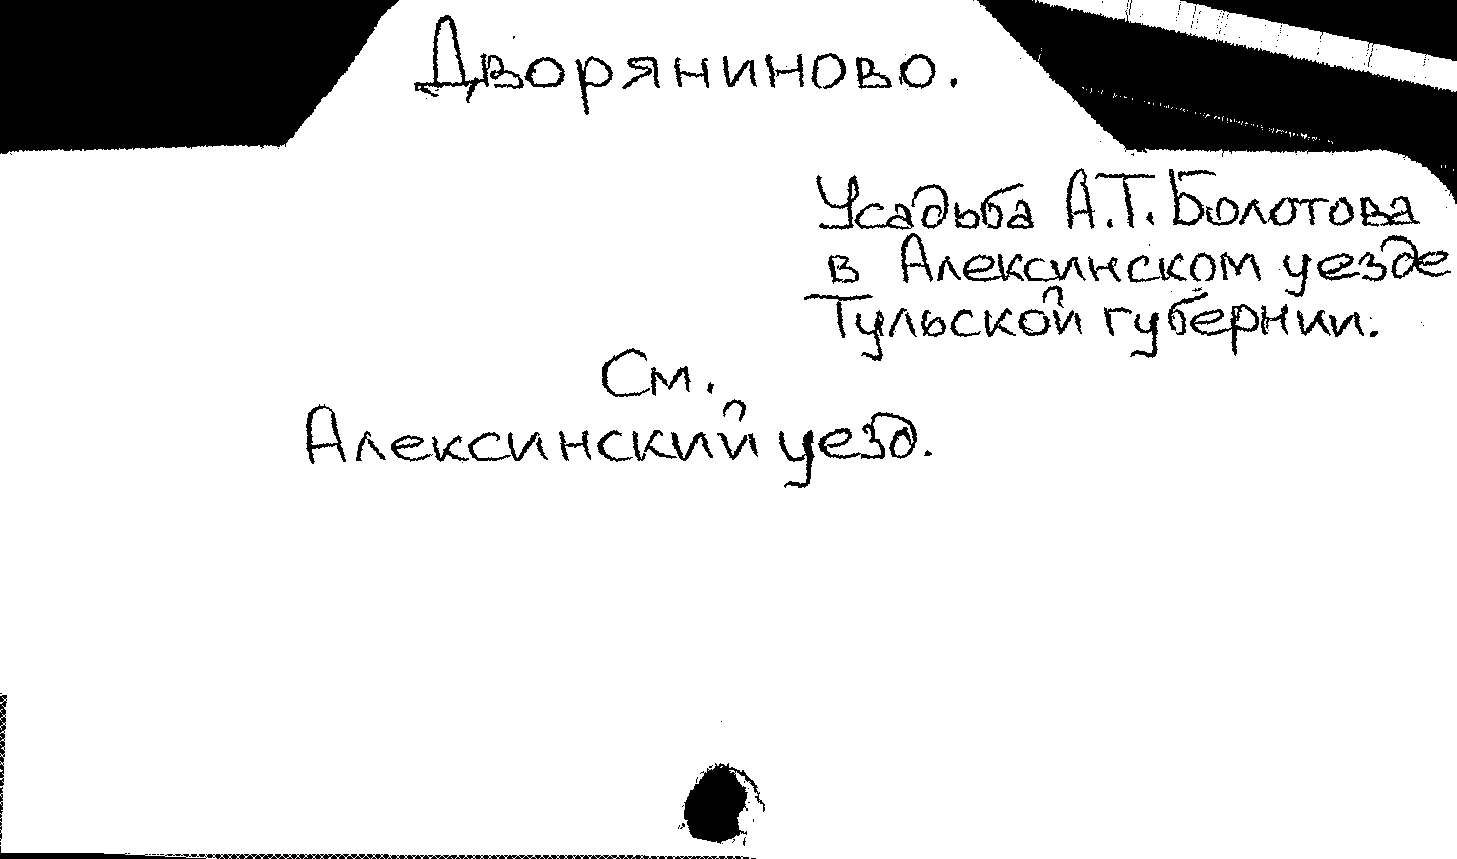 Дворяниново.
Усадьба А.Т. Болотова
в Алексинском уезде
Тульской губернии.
См.
Алексинский уезд.